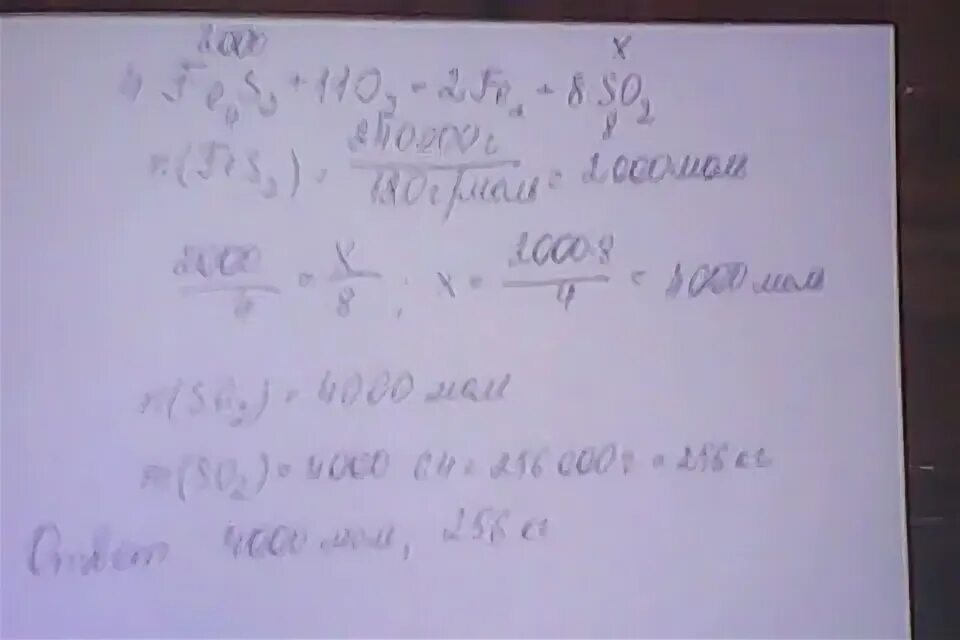 2000 x
4 FeS₂ + 11O₂ = 2Fe₂ + 8 SO₂
4 8
n(FeS₂) = 240000г / 120г/моль = 2000моль
2000/4 = x/8 ; x = 2000·8/4 = 4000 моль
n(SO₂) = 4000 моль
m(SO₂) = 4000 64 = 256 000г = 256 кг
Ответ 4000 моль, 256 кг